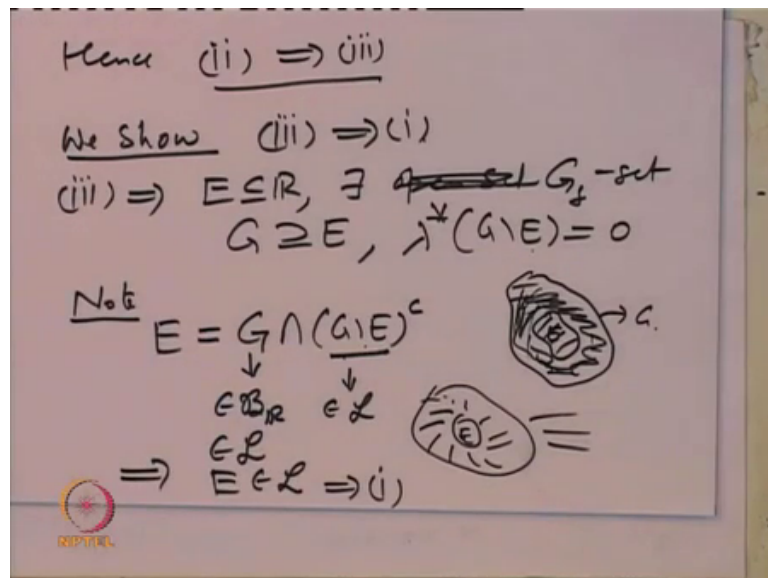 Hence (ii) ⟹ (iii)
We Show (iii) ⟹ (i)
(iii) ⟹ E ⊆ ℝ, ∃ G_δ-set
G ⊇ E, λ*(G\E) = 0
Note
E = G ∩ (G\E)ᶜ
↓ ↓
∈ 𝓑_ℝ ∈ 𝓛
∈ 𝓛
⟹ E ∈ 𝓛 ⟹ (i)
E → G.
E
NPTEL